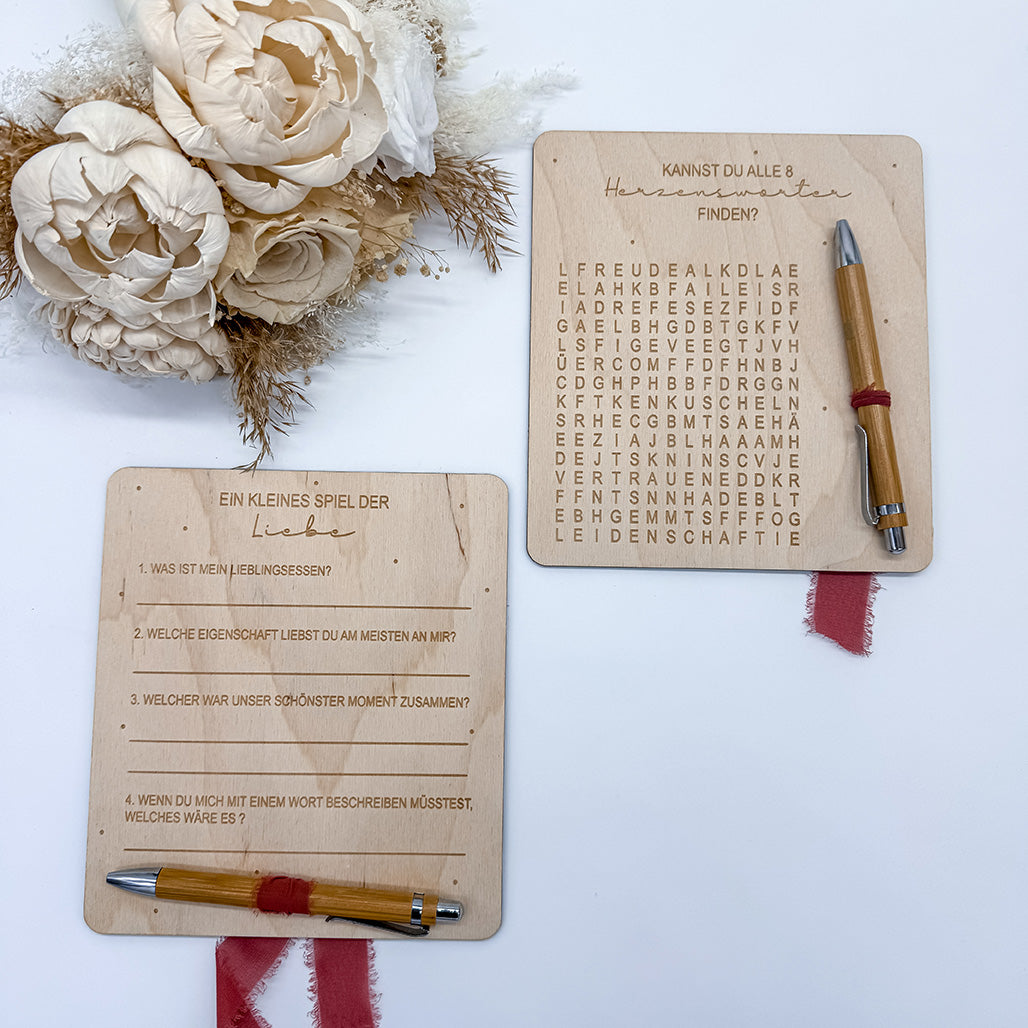 KANNST DU ALLE 8
Herzenswörter
FINDEN?
L F R E U D E A L K D L A E
E L A H K B F A I L E I S R
I A D R E F E S E Z F I D F
G A E L B H G D B T G K F V
L S F I G E V E E G T J V H
Ü E R C O M F F D F H N B J
C D G H P H B B F D R G G N
K F T K E N K U S C H E L N
S R H E C G B M T S A E H Ä
E E Z I A J B L H A A A M H
D E J T S K N I N S C V J E
V E R T R A U E N E D D K R
F F N T S N N H A D E B L T
E B H G E M M T S F F F O G
L E I D E N S C H A F T I E
EIN KLEINES SPIEL DER
Liebe
1. WAS IST MEIN LIEBLINGSESSEN?
2. WELCHE EIGENSCHAFT LIEBST DU AM MEISTEN AN MIR?
3. WELCHER WAR UNSER SCHÖNSTER MOMENT ZUSAMMEN?
4. WENN DU MICH MIT EINEM WORT BESCHREIBEN MÜSSTEST,
WELCHES WÄRE ES ?